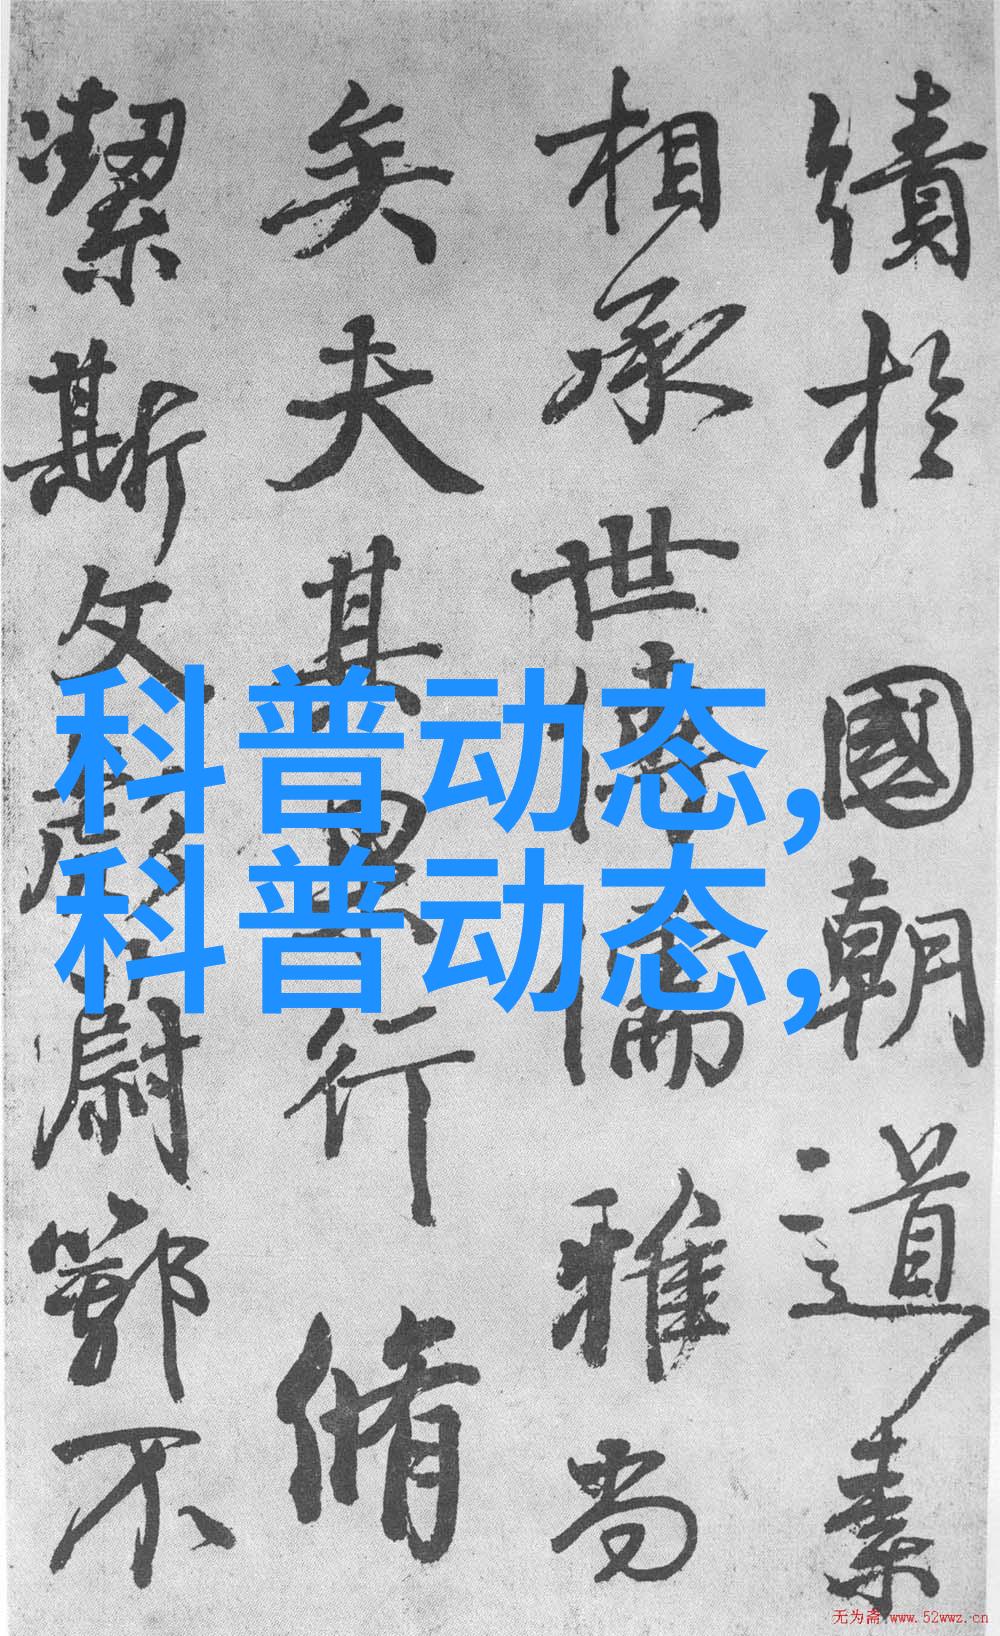 績於國朝道素
相承世傳儒雅尚
矣夫其果行脩
潔斯文彪蔚鄂不
科普动态,
科普动态,
无为斋 www.52wwz.cn